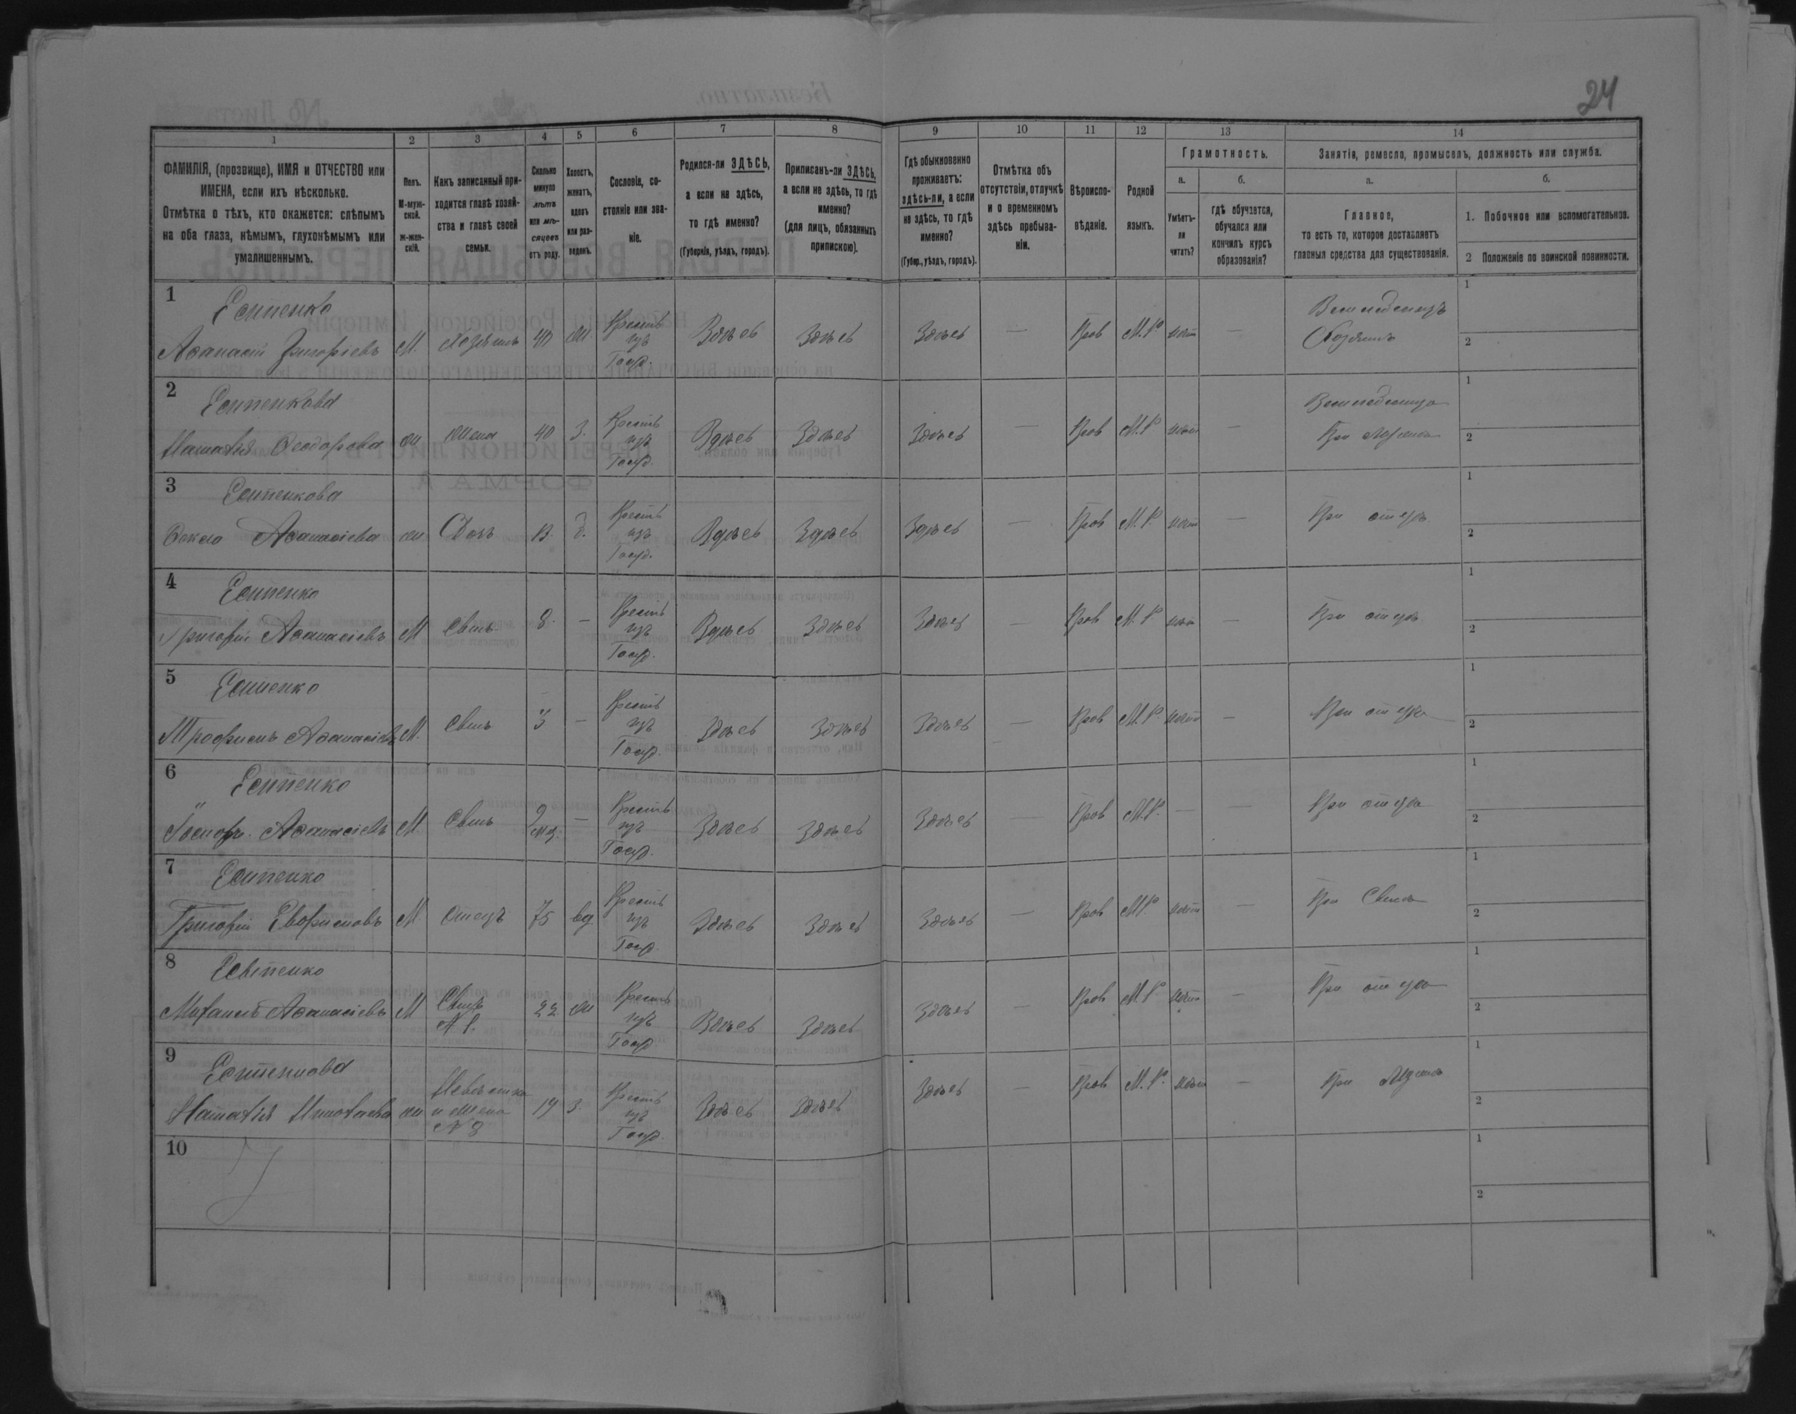 24
1 2 3 4 5 6 7 8 9 10 11 12 13 14
ФАМИЛІЯ, (прозвище), ИМЯ и ОТЧЕСТВО или
ИМЕНА, если ихъ нѣсколько.
Отмѣтка о тѣхъ, кто окажется: слѣпымъ
на оба глаза, нѣмымъ, глухонѣмымъ или
умалишеннымъ.
Полъ.
М-муж-
ской.
ж-жен-
скій.
Какъ записанный при-
ходится главѣ хозяй-
ства и главѣ своей
семьи.
Сколько
минуло
лѣтъ
или мѣ-
сяцевъ
отъ роду.
Холостъ,
женатъ,
вдовъ
или раз-
веденъ.
Сословіе, со-
стояніе или зва-
ніе.
Родился-ли ЗДѢСЬ,
а если не здѣсь,
то гдѣ именно?
(Губернія, уѣздъ, городъ).
Приписанъ-ли ЗДѢСЬ,
а если не здѣсь, то гдѣ
именно?
(для лицъ, обязанныхъ
припискою).
Гдѣ обыкновенно
проживаетъ:
здѣсь-ли, а если
не здѣсь, то гдѣ
именно?
(Губер., уѣздъ, городъ).
Отмѣтка объ
отсутствіи, отлучкѣ
и о временномъ
здѣсь пребыва-
ніи.
Вѣроиспо-
вѣданіе.
Родной
языкъ.
Грамотность.
а.
Умѣетъ-
ли
читать?
б.
гдѣ обучается,
обучался или
кончилъ курсъ
образованія?
Занятія, ремесло, промыселъ, должность или служба.
а.
Главное,
то есть то, которое доставляетъ
главныя средства для существованія.
б.
1. Побочное или вспомогательное.
2 Положеніе по воинской повинности.
1 Есипенко
Афанасій Григорьевъ М. Хозяинъ 40 ж. Крест. изъ Госуд. Здѣсь Здѣсь Здѣсь — Прав М.Р. нѣтъ — Земледелецъ Хозяинъ 1 2
2 Есипенкова
Наталія Феодорова ж жена 40 З. Крест. изъ Госуд. Здѣсь Здѣсь Здѣсь — Прав М.Р. нѣтъ — При мужи 1 2
3 Есипенкова
Афанасіева ж Дочь 13 д. Крест. изъ Госуд. Здѣсь Здѣсь Здѣсь — Прав М.Р. нѣтъ — При отцѣ 1 2
4 Есипенко
Григорій Афанасіевъ М Сынъ 8 — Крест. изъ Госуд. Здѣсь Здѣсь Здѣсь — Прав М.Р. нѣтъ — При отцѣ 1 2
5 Есипенко
Трофимъ Афанасіевъ М. Сынъ 3 — Крест. изъ Госуд. Здѣсь Здѣсь Здѣсь — Прав М.Р. нѣтъ — При отцѣ 1 2
6 Есипенко
Афанасіевъ М Сынъ 9 мѣ. — Крест. изъ Госуд. Здѣсь Здѣсь Здѣсь — Прав М.Р. — — При отцѣ 1 2
7 Есипенко
Григорій М Отецъ 75 вд Крест. изъ Госуд. Здѣсь Здѣсь Здѣсь — Прав М.Р. нѣтъ — При Сынѣ 1 2
8 Есипенко
Михаилъ Афанасіевъ М Сынъ 22 ж Крест. изъ Госуд. Здѣсь Здѣсь Здѣсь — Прав М.Р. нѣтъ — При отцѣ 1 2
9 Есипенкова
Наталія ж Невѣстка и жена N 8 19 З. Крест. изъ Госуд. Здѣсь Здѣсь Здѣсь — Прав М.Р. нѣтъ — При мужи 1 2
10 1 2